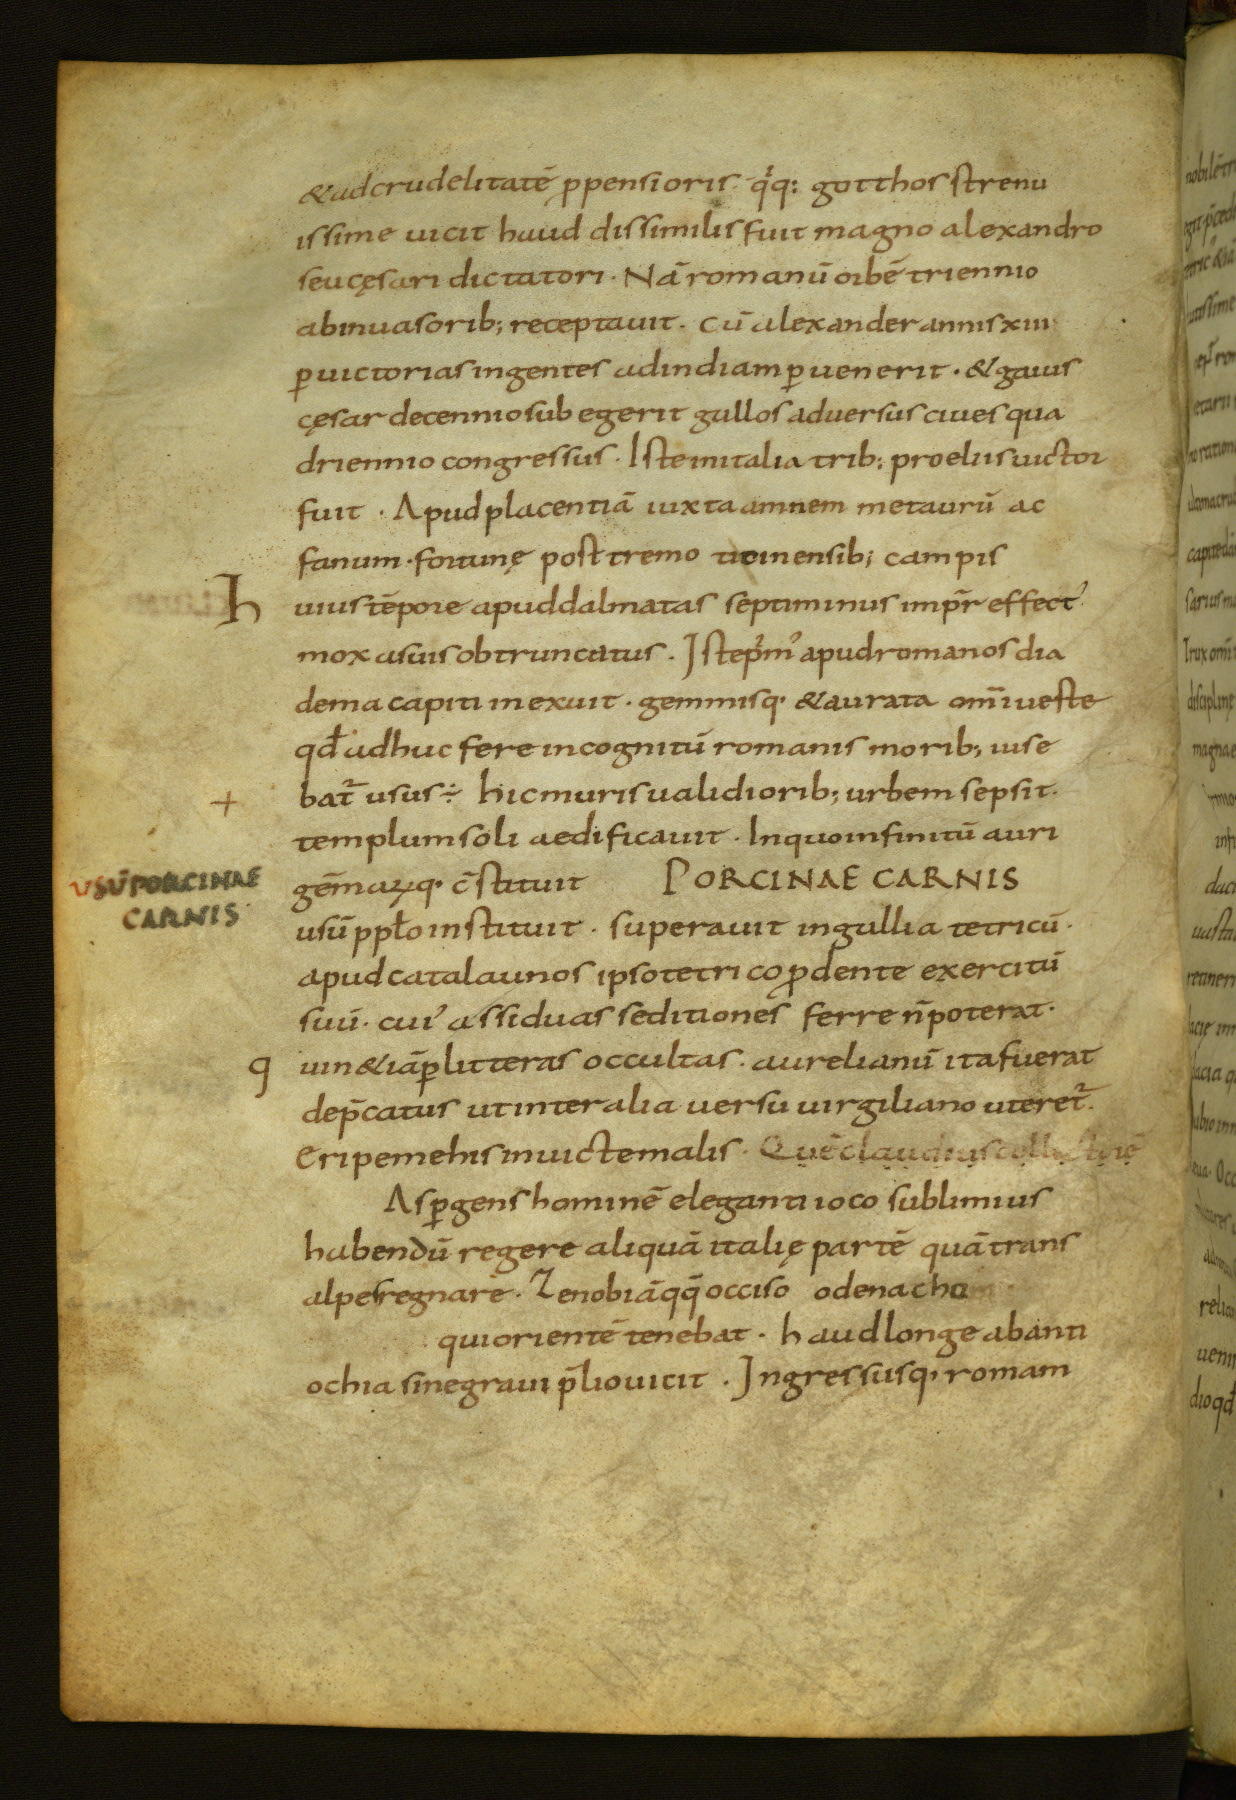 &adcrudelitatē ꝓpensioris· q̇q: gotthos strenu
issime uicit haud dissimilis fuit magno alexandro
seu cęsari dictatori· Nā romanū orbē triennio
abinuasorib; receptauit· cū alexander annis xiii
ꝑuictorias ingentes adindiam ꝑuenerit· &gaius
cęsar decennio sub egerit gallos aduersus ciues qua
driennio congressus· Iste initalia trib; proeliis uictor
fuit· Apud placentiā iuxta amnem metaurū ac
fanum·fortunę post tremo ticinensib; campis
h uius tēpore apud dalmatas septiminus imp̄r effect᾽
mox asuis obtruncatus· Iste p̓m᾽ apud romanos dia
dema capiti inexuit· gemmisq· &aurata om̄i ueste
qđ adhuc fere incognitū romanis morib; uise
+ bat̄ usus÷ hic muris ualidiorib; urbem sepsit·
templum soli aedificauit· In quo infinitū auri
usū PORCINAE
CARNIS
gēmaꝝq· c̄stituit PORCINAE CARNIS
usū ppło instituit· superauit ingallia tetricū·
apud catalaunos ipso tetrico ꝓdente exercitū
suū· cui᾽ assiduas seditiones ferre n̄ poterat·
q uin&iā ꝑlitteras occultas· aurelianū ita fuerat
dep̄catus ut inter alia uersu uirgiliano uteret̄·
Eripe me his inuicte malis· Quē claudius
Asꝑgens hominē eleganti ioco sublimius
habendū regere aliquā italię partē quā trans
alpes regnare· Zenobiā qq̄ occiso odenacho
qui orientē tenebat· haud longe abanti
ochia sine graui p̄lio uicit· Ingressusq· romam